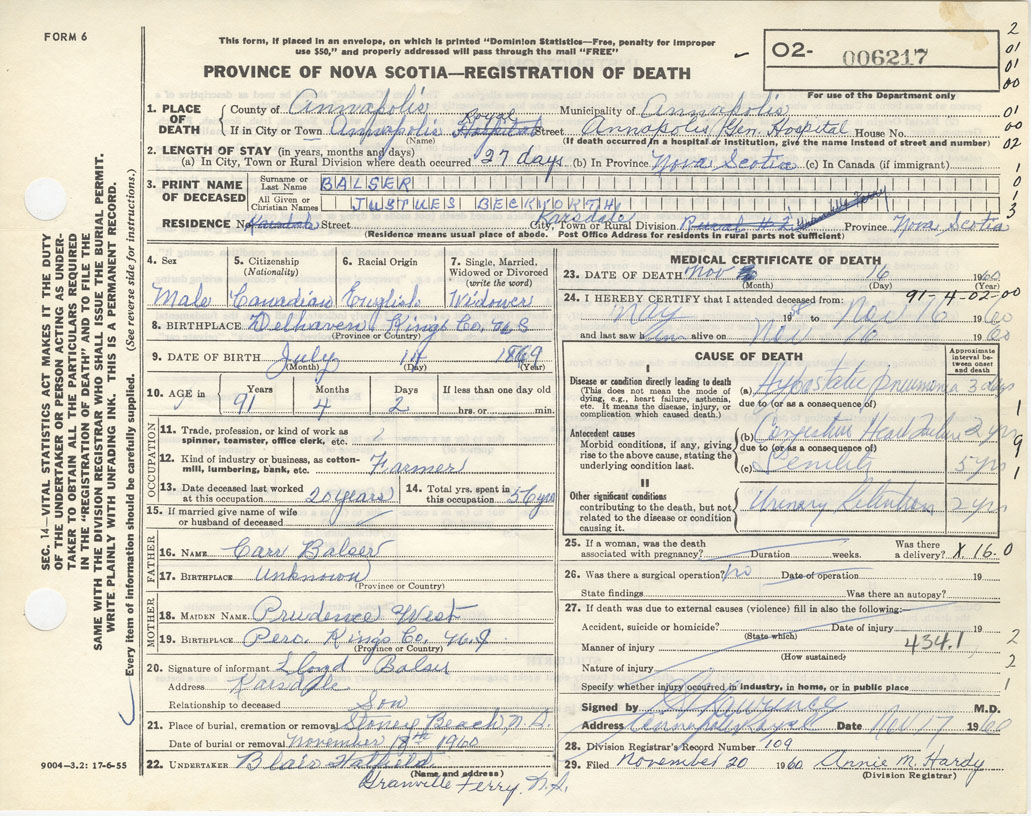 FORM 6
This form, if placed in an envelope, on which is printed "Dominion Statistics—Free, penalty for improper
use $50," and properly addressed will pass through the mail "FREE"
02- 006217
For use of the Department only
PROVINCE OF NOVA SCOTIA—REGISTRATION OF DEATH
1. PLACE OF DEATH
County of Annapolis Municipality of Annapolis
If in City or Town Annapolis Royal Hospital Street Annapolis Gen. Hospital House No.
(Name) (If death occurred in a hospital or institution, give the name instead of street and number)
2. LENGTH OF STAY (in years, months and days)
(a) In City, Town or Rural Division where death occurred 27 days (b) In Province Nova Scotia (c) In Canada (if immigrant)
3. PRINT NAME OF DECEASED
Surname or Last Name BALSER
All Given or Christian Names JUSTUES BECKWORTH
RESIDENCE No. Karsdale Street City, Town or Rural Division Karsdale Rural # 2 Province Nova Scotia
(Residence means usual place of abode. Post Office Address for residents in rural parts not sufficient)
4. Sex Male
5. Citizenship (Nationality) Canadian
6. Racial Origin English
7. Single, Married, Widowed or Divorced (write the word) Widower
8. BIRTHPLACE Delhaven, Kings Co. N.S
(Province or Country)
9. DATE OF BIRTH July 14 1869
(Month) (Day) (Year)
10. AGE in Years 91 Months 4 Days 2 If less than one day old hrs. or min.
OCCUPATION
11. Trade, profession, or kind of work as spinner, teamster, office clerk, etc.
12. Kind of industry or business, as cotton-mill, lumbering, bank, etc. Farmer
13. Date deceased last worked at this occupation 20 years
14. Total yrs. spent in this occupation 56 yrs
15. If married give name of wife or husband of deceased
FATHER
16. NAME Carr Balser
17. BIRTHPLACE Unknown
(Province or Country)
MOTHER
18. MAIDEN NAME Prudence West
19. BIRTHPLACE Pero, Kings Co. N.S
(Province or Country)
20. Signature of informant Lloyd Balser
Address Karsdale
Relationship to deceased Son
21. Place of burial, cremation or removal Stoney Beach, N.S.
Date of burial or removal November 18th 1960
22. UNDERTAKER Blair Hatfield
(Name and address)
Granville Ferry, N.S.
MEDICAL CERTIFICATE OF DEATH
23. DATE OF DEATH Nov 16 1960
(Month) (Day) (Year)
91-4-02-00
24. I HEREBY CERTIFY that I attended deceased from:
May 1958 to Nov 16 1960
and last saw him alive on Nov 16 1960
CAUSE OF DEATH
Approximate interval between onset and death
I
Disease or condition directly leading to death
(This does not mean the mode of dying, e.g., heart failure, asthenia, etc. It means the disease, injury, or complication which caused death.)
(a) Hypostatic pneumonia 3 days
due to (or as a consequence of)
Antecedent causes
Morbid conditions, if any, giving rise to the above cause, stating the underlying condition last.
(b) Congestive Heart Failure 2 yrs
due to (or as a consequence of)
(c) Senility 5 yrs
II
Other significant conditions
contributing to the death, but not related to the disease or condition causing it.
Urinary Retention 2 yrs
25. If a woman, was the death associated with pregnancy? Duration weeks. Was there a delivery? X. 16.0
26. Was there a surgical operation? no Date of operation 19
State findings Was there an autopsy?
27. If death was due to external causes (violence) fill in also the following:
Accident, suicide or homicide? Date of injury 19
(State which)
Manner of injury 434.1
(How sustained)
Nature of injury
Specify whether injury occurred in industry, in home, or in public place
Signed by M.D.
Address Annapolis Royal Date Nov 17 1960
28. Division Registrar's Record Number 109
29. Filed November 20 1960 Annie M. Hardy
(Division Registrar)
SEC. 14—VITAL STATISTICS ACT MAKES IT THE DUTY
OF THE UNDERTAKER OR PERSON ACTING AS UNDER-
TAKER TO OBTAIN ALL THE PARTICULARS REQUIRED
IN THE "REGISTRATION OF DEATH" AND FILE THE
SAME WITH THE DIVISION REGISTRAR WHO SHALL ISSUE THE BURIAL PERMIT.
WRITE PLAINLY WITH UNFADING INK. THIS IS A PERMANENT RECORD.
Every item of information should be carefully supplied. (See reverse side for instructions.)
9004—3.2: 17-6-55
2
01
01
00
01
00
02
1
0
1
3
1
9
1
2
2
1